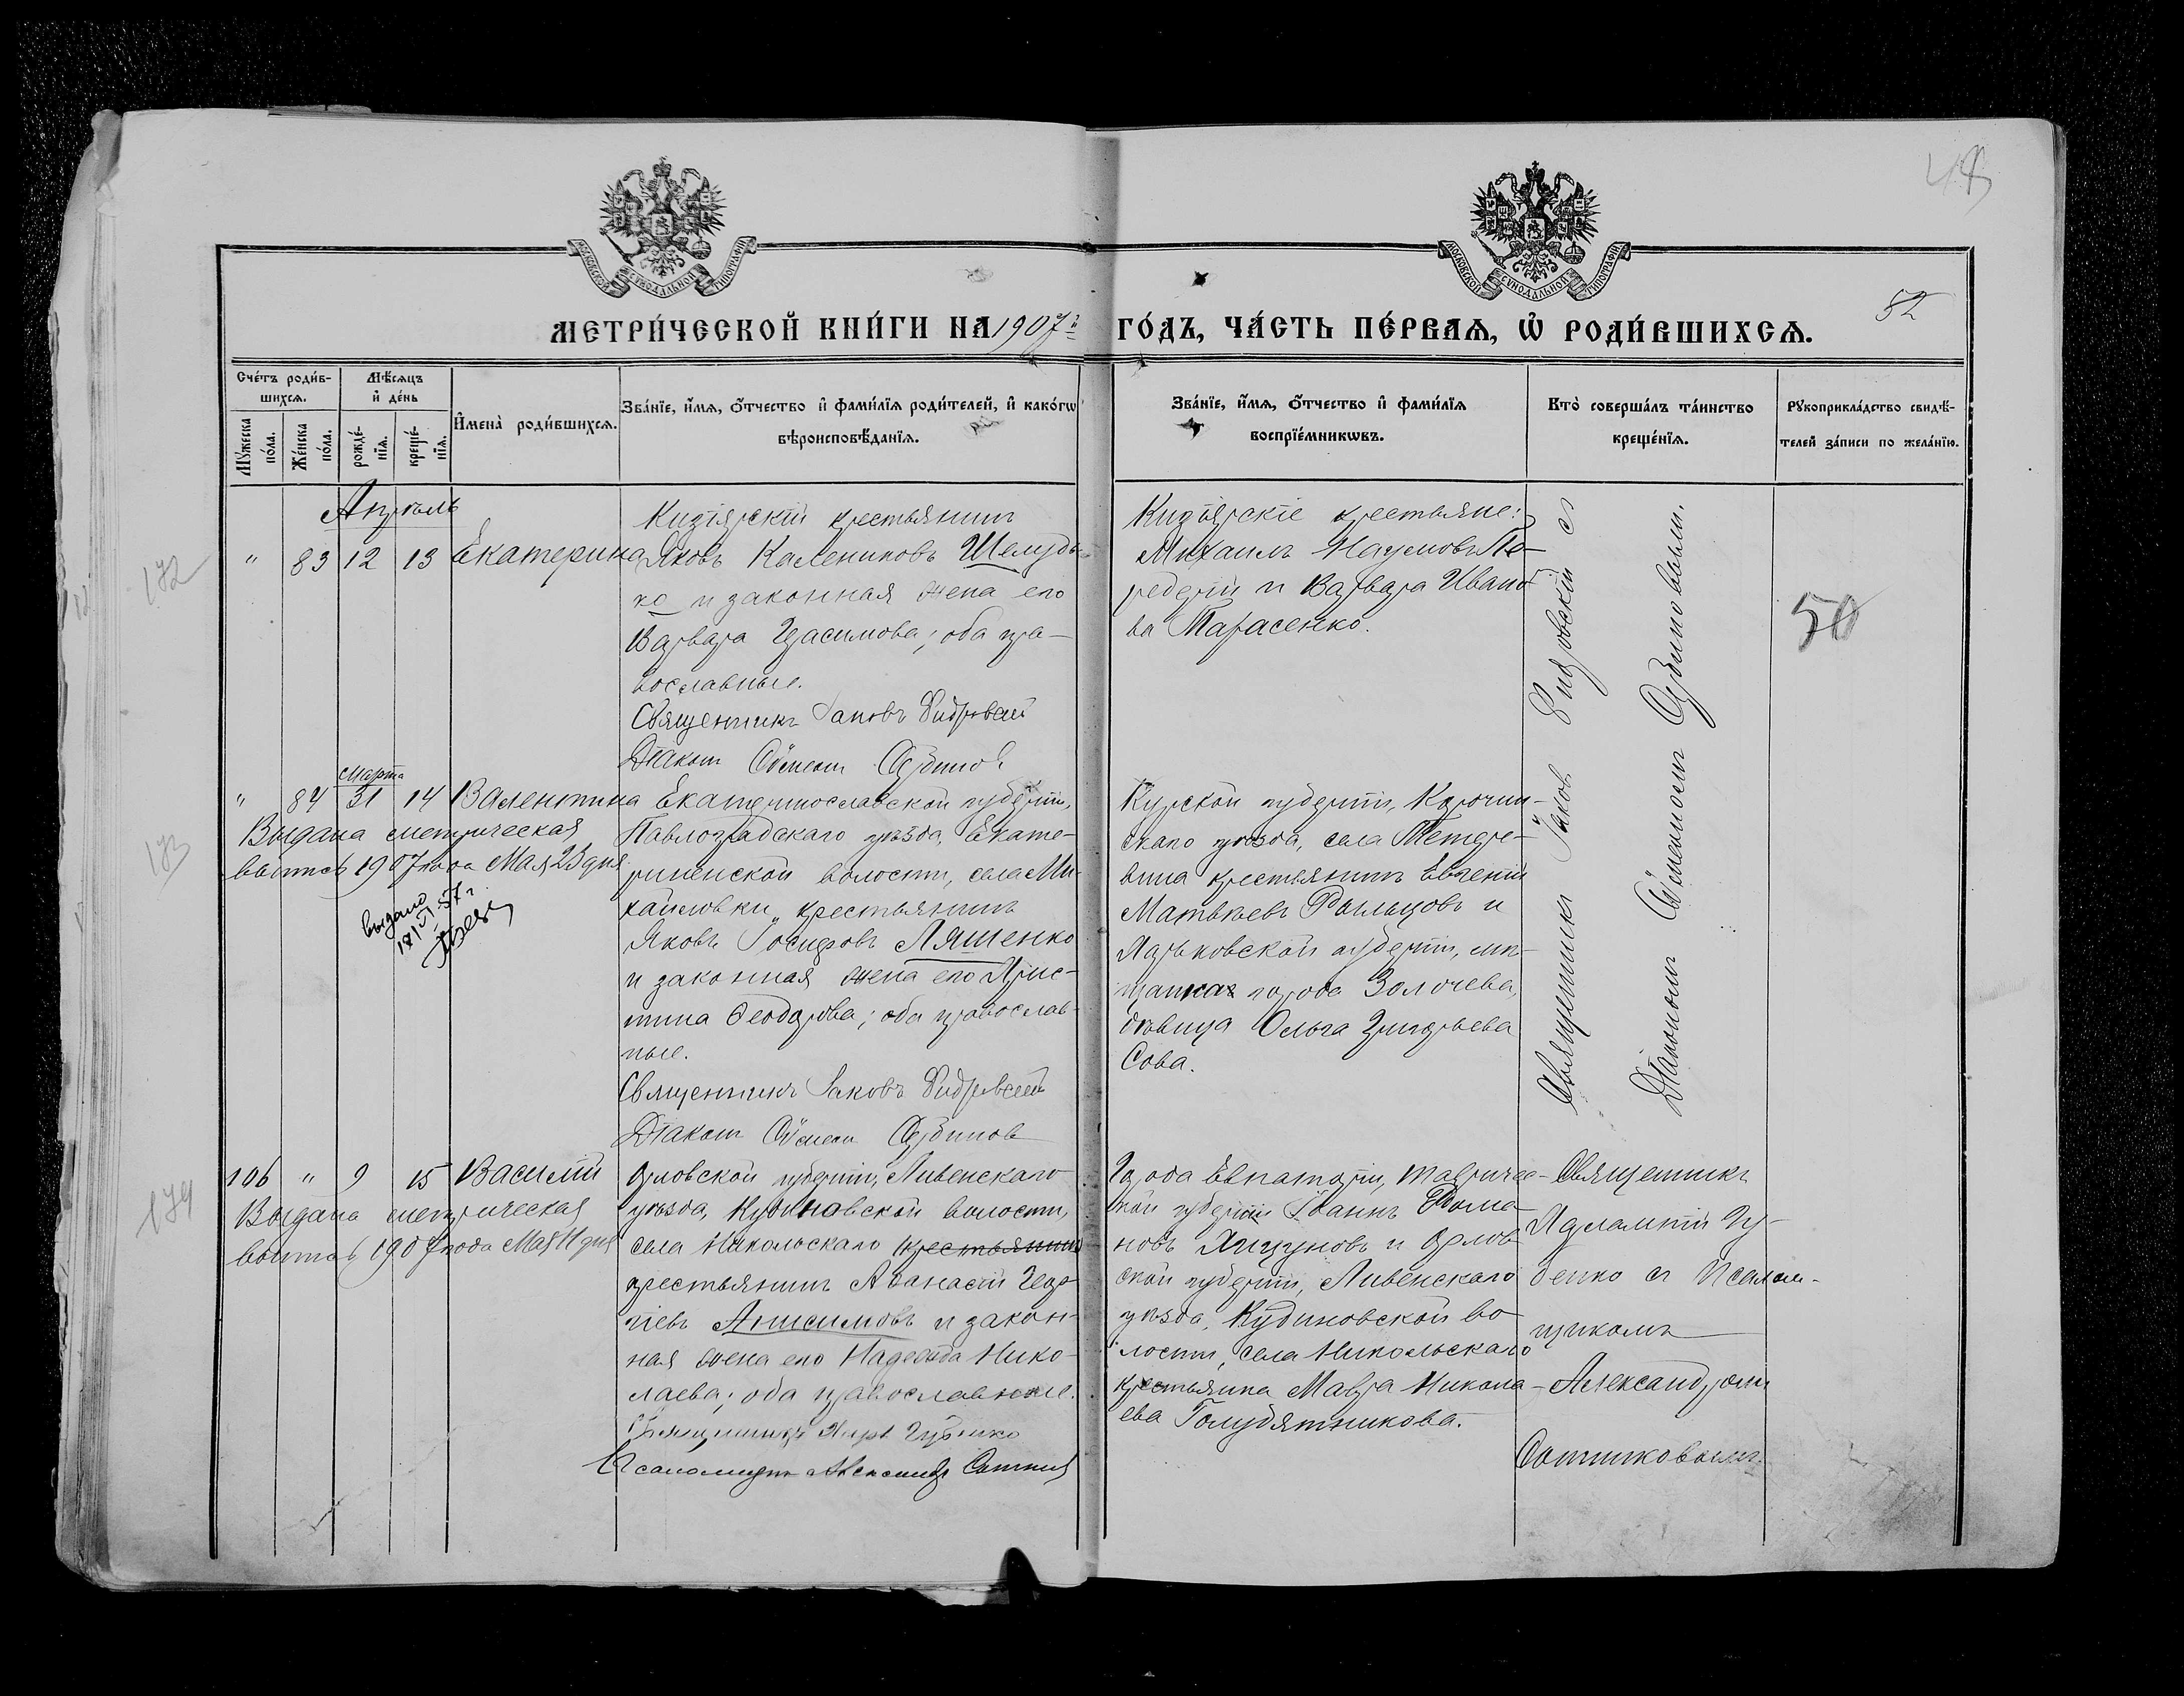 48
52
МОСКОВСКОЙ СѴНОДАЛЬНОЙ ТИПОГРАФІИ
МОСКОВСКОЙ СѴНОДАЛЬНОЙ ТИПОГРАФІИ
МЕТРИ́ЧЕСКОЙ КНИ́ГИ НА 1907й ГО́ДЪ, ЧА́СТЬ ПЕ́РВАѦ, Ѡ҆ РОДИ́ВШИХСѦ.
Сче́тъ роди́в-
шихсѧ.
Мꙋ́жеска
по́ла.
Же́нска
по́ла.
Мѣ́сѧцъ
и҆ де́нь
рожде́-
нїѧ.
креще́-
нїѧ.
И҆мена̀ роди́вшихсѧ.
Зва́нїе, и҆́мѧ, ѻ҆́тчество и҆ фами́лїѧ роди́телей, и҆ како́гѡ
вѣроисповѣ́данїѧ.
Зва́нїе, и҆́мѧ, ѻ҆́тчество и҆ фами́лїѧ
воспрїе́мникѡвъ.
Кто̀ соверша́лъ та́инство
креще́нїѧ.
Рꙋкоприкла́дство свидѣ́-
телей за́писи по жела́нїю.
Апрѣль
172
" 83 12 13 Екатерина
Кизіярскій крестьянинъ
Яковъ Калениковъ Шелудь-
ко и законная жена его
Варвара Герасимова; оба пра-
вославные.
Священникъ Іаковъ
Діаконъ Сѵмеонъ
Кизіярскіе крестьяне:
Михаилъ Наумовъ Пе-
редерій и Варвара Ивано-
ва Тарасенко.
Священникъ Іаковъ с
Діакономъ Сѵмеономъ
50
173
Марта
" 84 31 14 Валентина
Выдана метрическая
выпись 1907 года Мая 23 дня
выдано
18/VI-57г
Екатеринославской губерніи,
Павлоградскаго уѣзда, Екате-
рининской волости, села Ми-
хайловки, крестьянинъ
Яковъ Іосифовъ Ляшенко
и законная жена его Хрис-
тина Ѳеодорова; оба православ-
ные.
Священникъ Іаковъ
Діаконъ Сѵмеонъ
Курской губерніи, Корочан-
скаго уѣзда, села Тетере-
вина крестьянинъ Евгеній
Матвѣевъ Рыльцовъ и
Харьковской губерніи, мѣ-
щанка города Золочева,
дѣвица Ольга Григорьева
Сова.
174
106 " 9 15 Василій
Выдана метрическая
выпись 1907 года Мая 11 дня
Орловской губерніи, Ливенскаго
уѣзда, Кудиновской волости,
села Никольскаго крестьянинъ
крестьянинъ Аѳанасій Геор-
гіевъ Анисимовъ и закон-
ная жена его Надежда Нико-
лаева; оба православные.
Священникъ Харл. Губенко
Псаломщикъ Александръ Сотник
Города Евпаторіи, Тавричес-
кой губерніи Іоаннъ Рома-
новъ и Орлов-
ской губерніи, Ливенскаго
уѣзда, Кудиновской во-
лости, села Никольскаго
крестьянка Мавра Никола-
ева Голубятникова.
Священникъ
Харлампій Гу-
бенко съ Псалом-
щикомъ
Александромъ
Сотниковымъ.